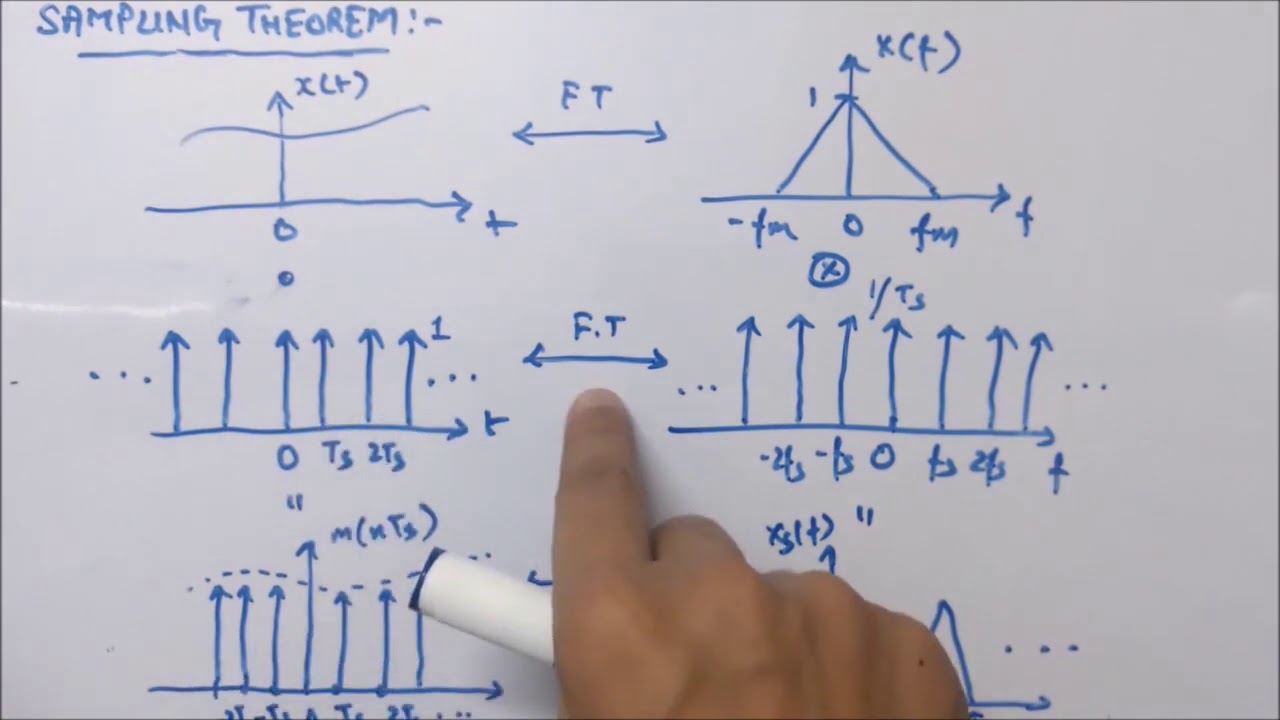 SAMPLING THEOREM:-
x(t)
FT
x(f)
1
0
t
-fm 0 fm
f
x
1/Ts
1
F.T
...
...
...
...
t
0 Ts 2Ts
-2fs -fs 0 fs 2fs
f
"
m(nTs)
xs(f) "
...
...
Ts
...